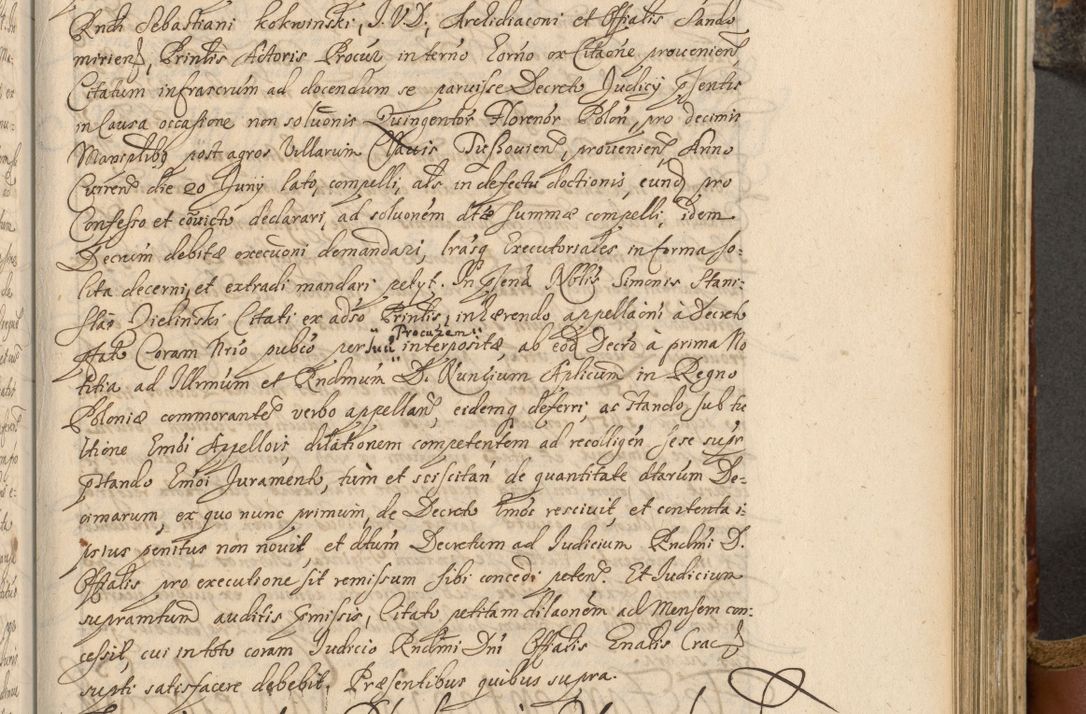 Rndi Sebastiani Kokwinski, I. V. D., Archidiaconi et Offialis Sando
mirien, Prinlis Actoris Procur in terno Eorno ex Citaone provenien
Citatum infrascrum ad docendum se paruisse Decreto Judicij psentis
in Causa occasione non soluonis Quingentor Florenor Polon, pro decimis
Manipulibq post agros Villarum Clavis provenien, Anno
Curren die 20 Juny lato, compelli, als in defectu doctionis, eund pro
Confesso et covicto declarari, ad soluonem dtæ summæ compelli, idem
Decrum debitæ execuoni demandari, lrasq Executoriales in forma so-
lita decerni, et extradi mandari petyt. In psena Nblis Simonis Stani-
slai Zielinski Citati ex adso Prinlis, inhærendo appellaoni à Decreto
ffato Coram Nrio pubco per suu Procurem interpositæ, ab eod Decro à prima No
titia ad Illrmum et Rndmum D. Nuncium Aplicum in Regno
Poloniæ commorante verbo appellan, eidemq deferri, ac stando, sub tu
itione Emdi Appellois, dilationem competentem ad recolligen sese supr
pstando Emoi Juramento, tum et sciscitan de quantitate dtarum De-
cimarum, ex quo nunc primum, de Decreto Emoi rescivit, et contenta i-
psius penitus non novit, et dtum Decretum ad Judicium Rndmi D.
Offialis pro executione sit remissum sibi concedi peten. Et Judicium
supramtum auditis pmissis, Citato petitam dilaonem ad Mensem con-
cessit, cui in toto coram Judicio Rndmi Dni Offialis Gnalis Crac
supti satisfacere debebit. Præsentibus quibus supra.